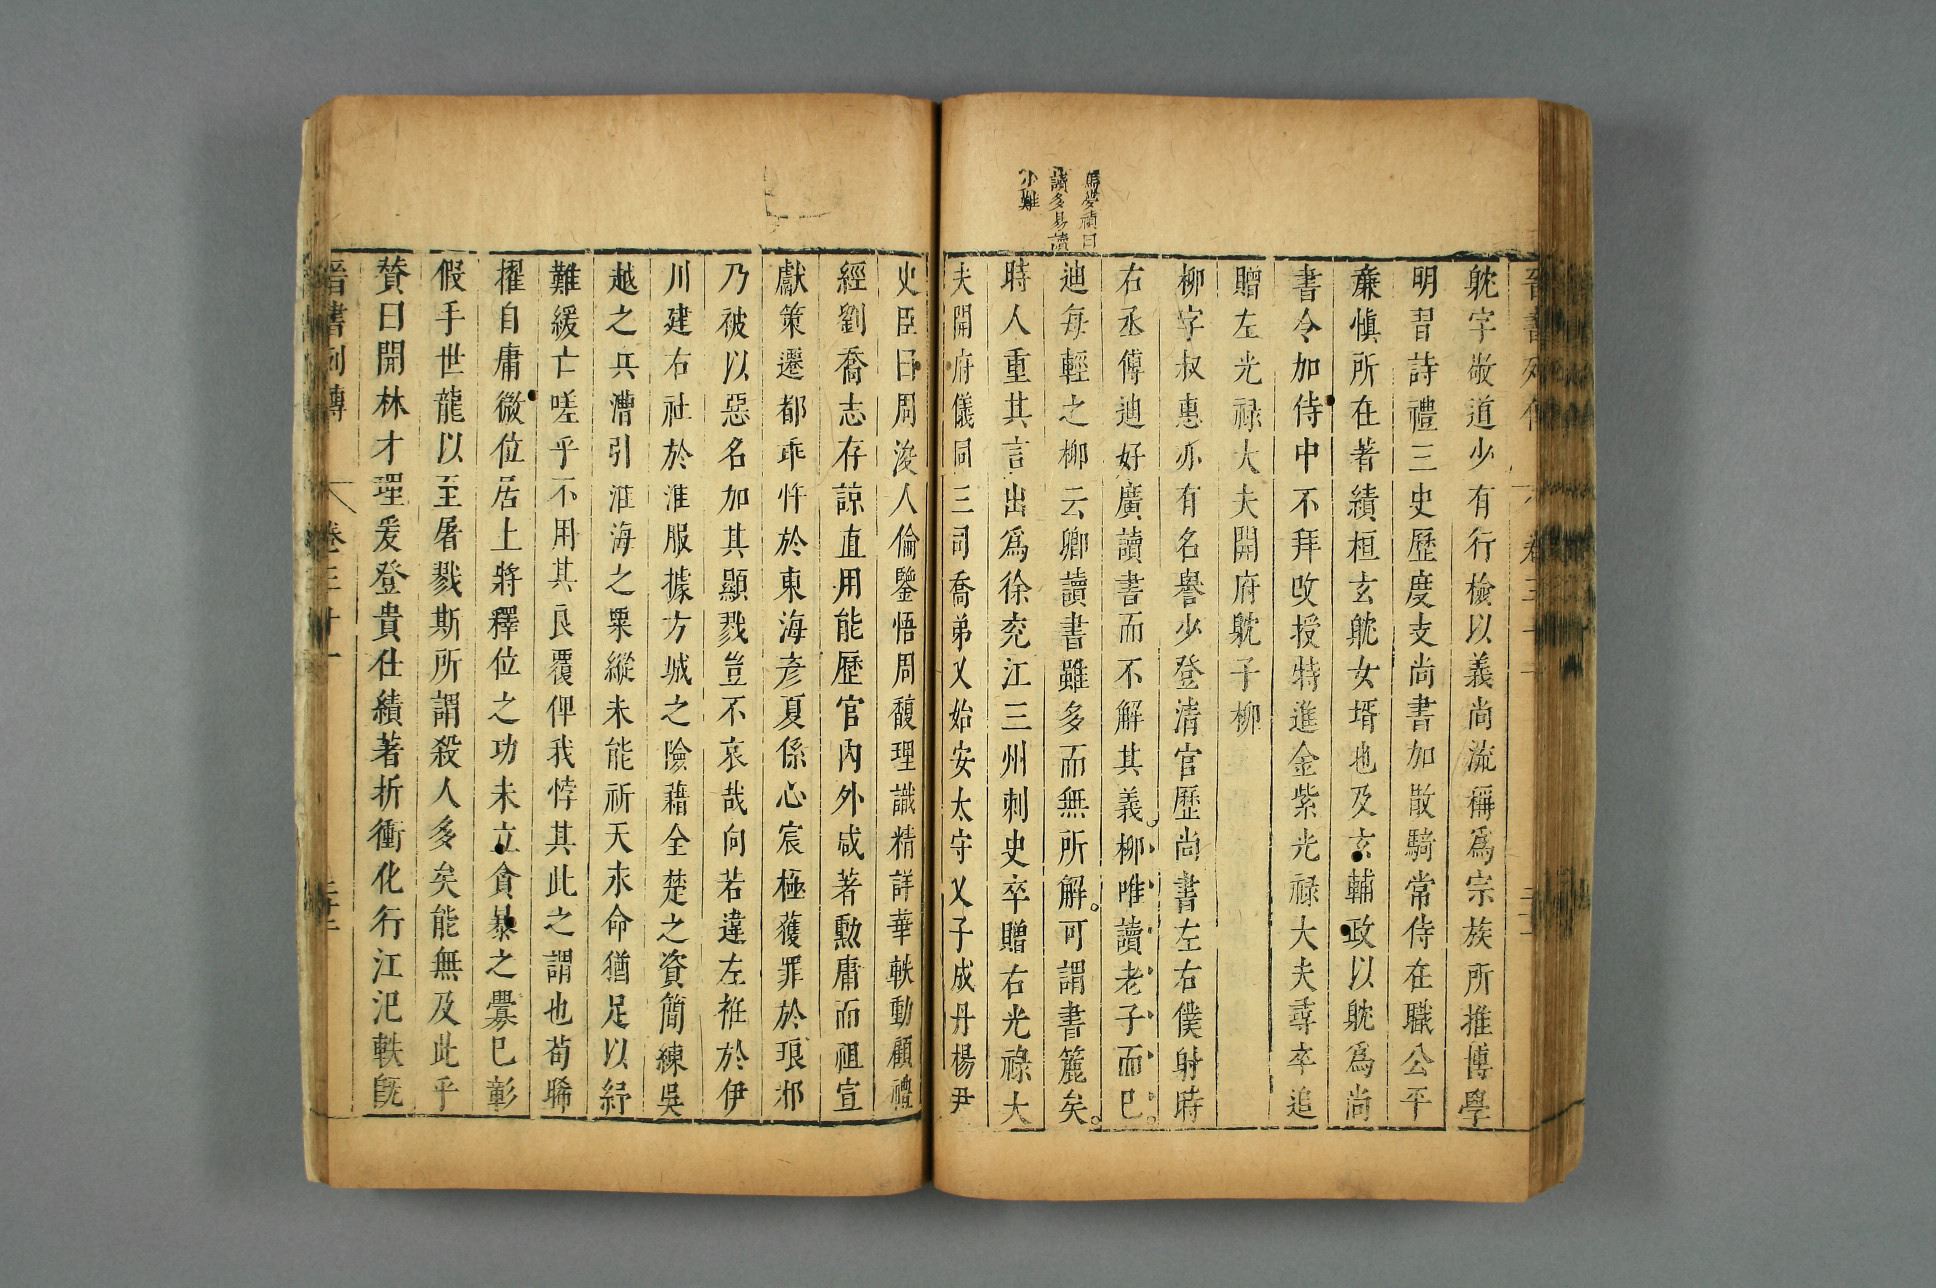 馮夢禎曰
讀多易讀
小難
耽字敬道少有行檢以義尚流稱爲宗族所推博學
明習詩禮三史歷度支尚書加散騎常侍在職公平
廉慎所在著績桓玄耽女壻也及玄輔政以耽爲尚
書令加侍中不拜改授特進金紫光祿大夫尋卒追
贈左光祿大夫開府耽子柳
柳字叔惠亦有名譽少登清官歷尚書左右僕射時
右丞傅迪好廣讀書而不解其義柳唯讀老子而已
迪每輕之柳云卿讀書雖多而無所解可謂書簏矣
時人重其言出爲徐兖江三州刺史卒贈右光祿大
夫開府儀同三司喬弟乂始安太守乂子成丹楊尹
史臣曰周浚人倫鑒悟周馥理識精詳華軼動顧禮
經劉喬志存諒直用能歷官內外咸著勲庸而祖宣
獻策遷都乖忤於東海彥夏係心宸極獲罪於琅邪
乃被以惡名加其顯戮豈不哀哉向若違左袵於伊
川建右社於淮服據方城之險藉全楚之資簡練吳
越之兵漕引淮海之粟縱未能祈天永命猶足以紓
難緩亡嗟乎不用其良覆俾我悖其此之謂也苟晞
擢自庸微位居上將釋位之功未立貪暴之釁已彰
假手世龍以至屠戮斯所謂殺人多矣能無及此乎
贊曰開林才理爰登貴仕績著折衝化行江汜軼旣
晉書列傳 卷三十一